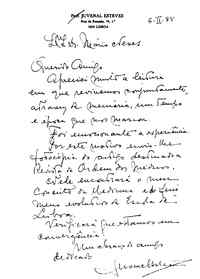 Prof. JUVENAL ESTEVES
LISBOA
6-II-85
Mário Neves
Querido Amigo
Apreciei muito a leitura
em que revivemos conjuntamente,
através da memória, um tempo
e época que nos marcou.
Foi emocionante a experiência
Por este motivo envio-lhe
fotocópia do artigo destinado a
Revista da Ordem dos Médicos.
Nele encontrará o nosso
conceito de Medicina
meus evolutivo da Escola de
Lisboa.
Verificará que estamos em
convergência!
Um abraço do amigo
dedicado